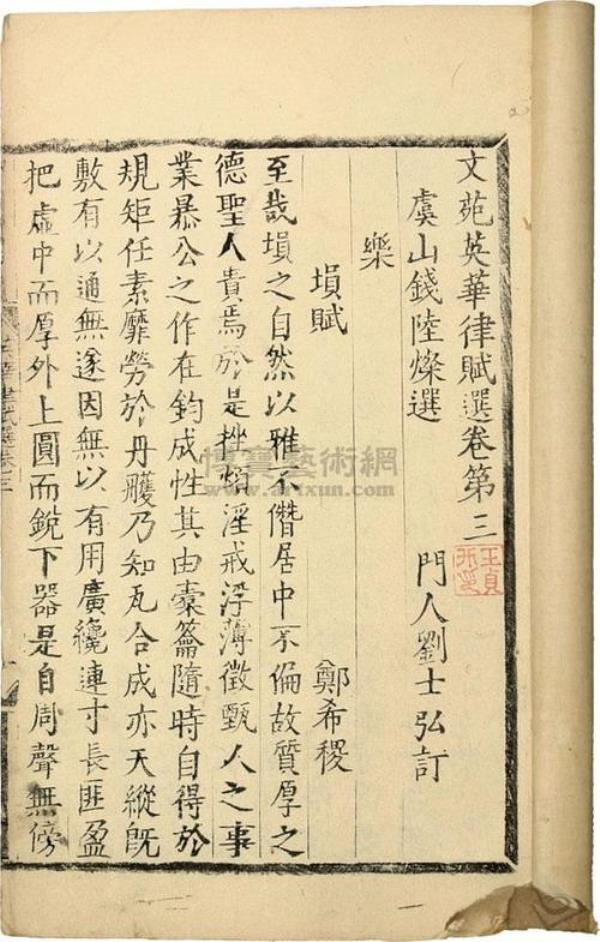 文苑英華律賦選卷第三
虞山錢陸燦選
門人劉士弘訂
樂
塤賦
鄭希稷
至哉塤之自然以雅不僭居中不偏故質厚之
德聖人貴焉於是挫煩淫戒浮薄徵甄人之事
業暴公之作在鈞成性其由橐籥隨時自得於
規矩任素靡勞於丹雘乃知瓦合成亦天縱旣
敷有以通無遂因無以有用廣纔連寸長匪盈
把虛中而厚外上圓而銳下器是自周聲無傍
王貞
博寶藝術網
www.artxun.com